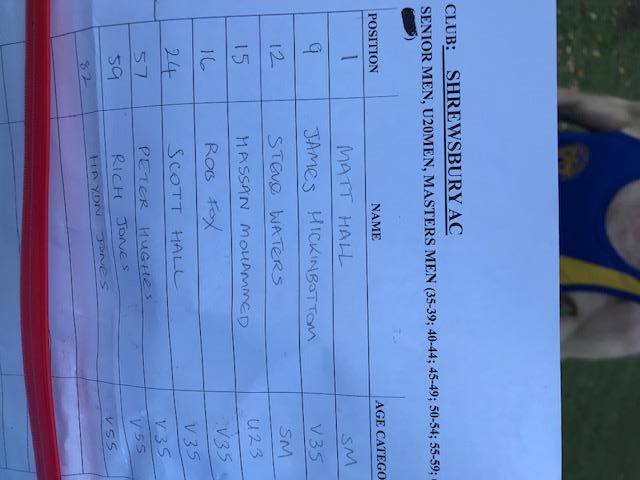 CLUB: SHREWSBURY AC
SENIOR MEN, U20MEN, MASTERS MEN (35-39; 40-44; 45-49; 50-54; 55-59;
)
POSITION NAME AGE CATEGO
1 MATT HALL SM
9 JAMES HICKINBOTTOM V35
12 STEVE WATERS SM
15 HASSAN MOHAMMED U23
16 ROB FOX V35
24 SCOTT HALL V35
57 PETER HUGHES V35
59 RICH JONES V55
82 HAYDN JONES V55